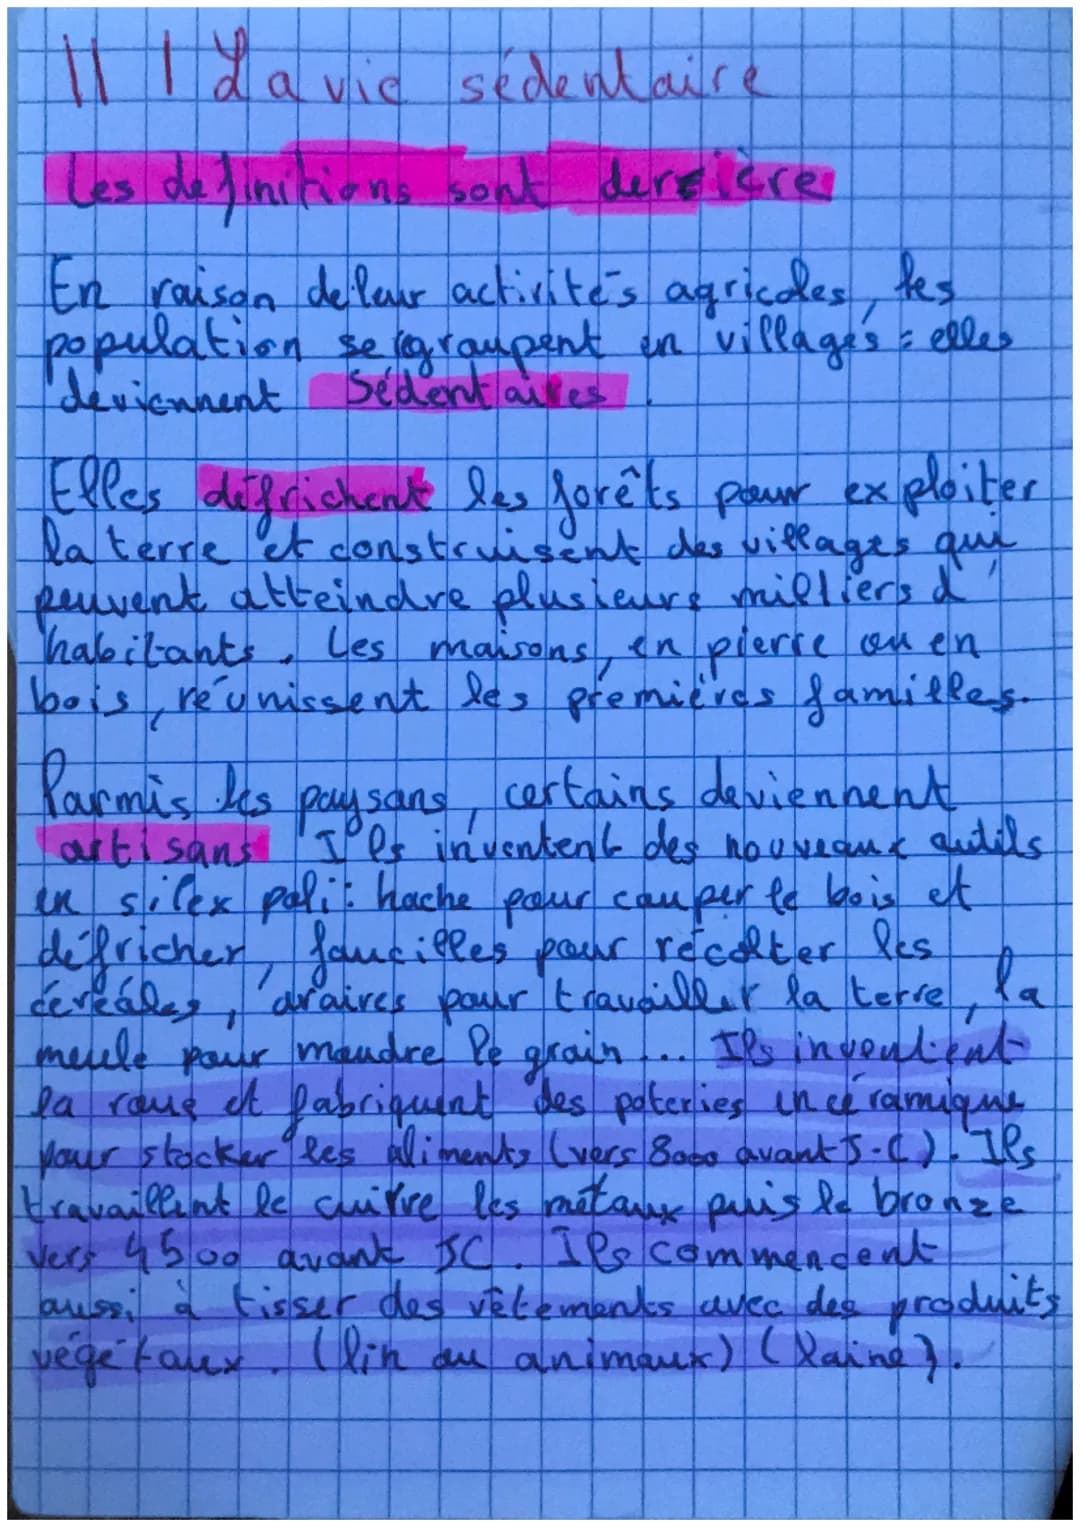 II | La vie sédentaire
Les definitions sont derrière
En raison de leur activités agricoles, les
population se regroupent en villages : elles
deviennent Sédentaires.
Elles défrichent les forêts pour exploiter
la terre et construisent des villages qui
peuvent atteindre plusieurs milliers d'
habitants. Les maisons, en pierre ou en
bois, réunissent les premières familles.
Parmis les paysans, certains deviennent
artisans Ils inventent des nouveaux outils
en silex poli : hache pour couper le bois et
défricher, faucilles pour récolter les
céréales, araires pour travailler la terre, la
meule pour moudre le grain ... Ils inventent
la roue et fabriquent des poteries en céramique
pour stocker les aliments (vers 8000 avant J-C). Ils
travaillent le cuivre les métaux puis le bronze
vers 4500 avant JC. Ils commencent
aussi à tisser des vêtements avec des produits
végétaux. (lin ou animaux) (laine).